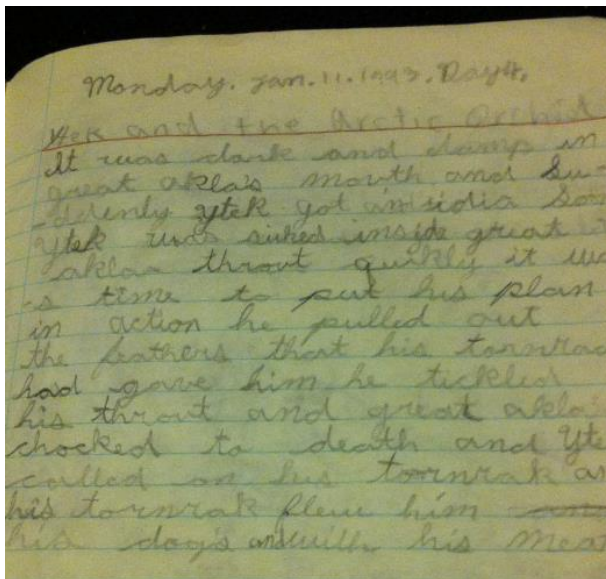 Monday. Jan. 11. 1993. Day 4.
Ytek and the Arctic Orchid
It was dark and damp in
great akla's mouth and su-
-ddenly ytek got
ytek was sicked inside great
aklas throut quikly it wa
-s time to put his plan
in action he pulled out
the feathers that his tornrac
had gave him he tickled
his throut and great akla
chocked to death and Yte
called on his tornrak an
his tornrak flew him
his dog's and with his meat